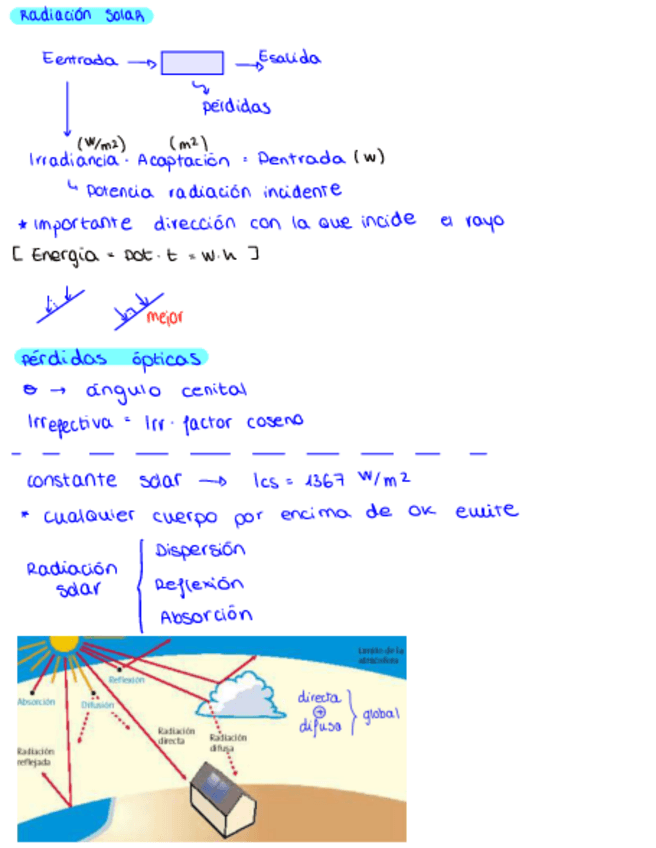 Radiación Solar
Eentrada → → Esalida
pérdidas
(W/m2) (m2)
Irradiancia · Acaptación = Pentrada (w)
↳ Potencia radiación incidente
* Importante dirección con la que incide el rayo
[ Energía = Pot · t = W·h ]
mejor
Pérdidas ópticas
θ → ángulo cenital
Irrefectiva = Irr · factor coseno
constante solar → Ics = 1367 W/m2
* cualquier cuerpo por encima de 0K emite
Radiación solar
Dispersión
Reflexión
Absorción
Límite de la
atmósfera
Reflexión
Absorción
Difusión
directa
⊕
difusa
global
Radiación
directa
Radiación
difusa
Radiación
reflejada